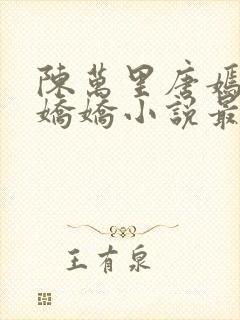 陳萬里唐嫣
嬌嬌小說最
王有泉